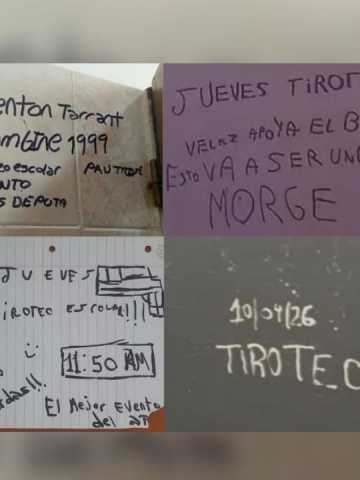 enton Tarrant
mbine 1999
eo escolar
NTO
S DE PUTA
JUEVES TIROT
APOYA EL B
ESTO VA A SER UN
MORGE
JUEVES
IROTEO ESCOLAR!!!
:)
11:50 AM
das!!
El Mejor Evento
del
10/04/26
TIROTEO